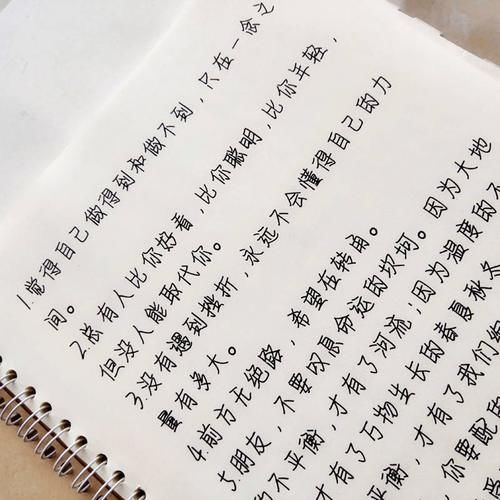 1.觉得自己做得到和做不到，只在一念之
间。
2.总有人比你好看，比你聪明，比你年轻，
但没人能取代你。
3.没有遇到挫折，永远不会懂得自己的力
量有多大。
4.前方无绝路，希望在转角。
5.朋友，不要叹息命运的坎坷。因为大地
的不平衡，才有了河流；因为温度的不
平衡，才有了万物生长的春夏秋冬
衡，才有了我们
你要配